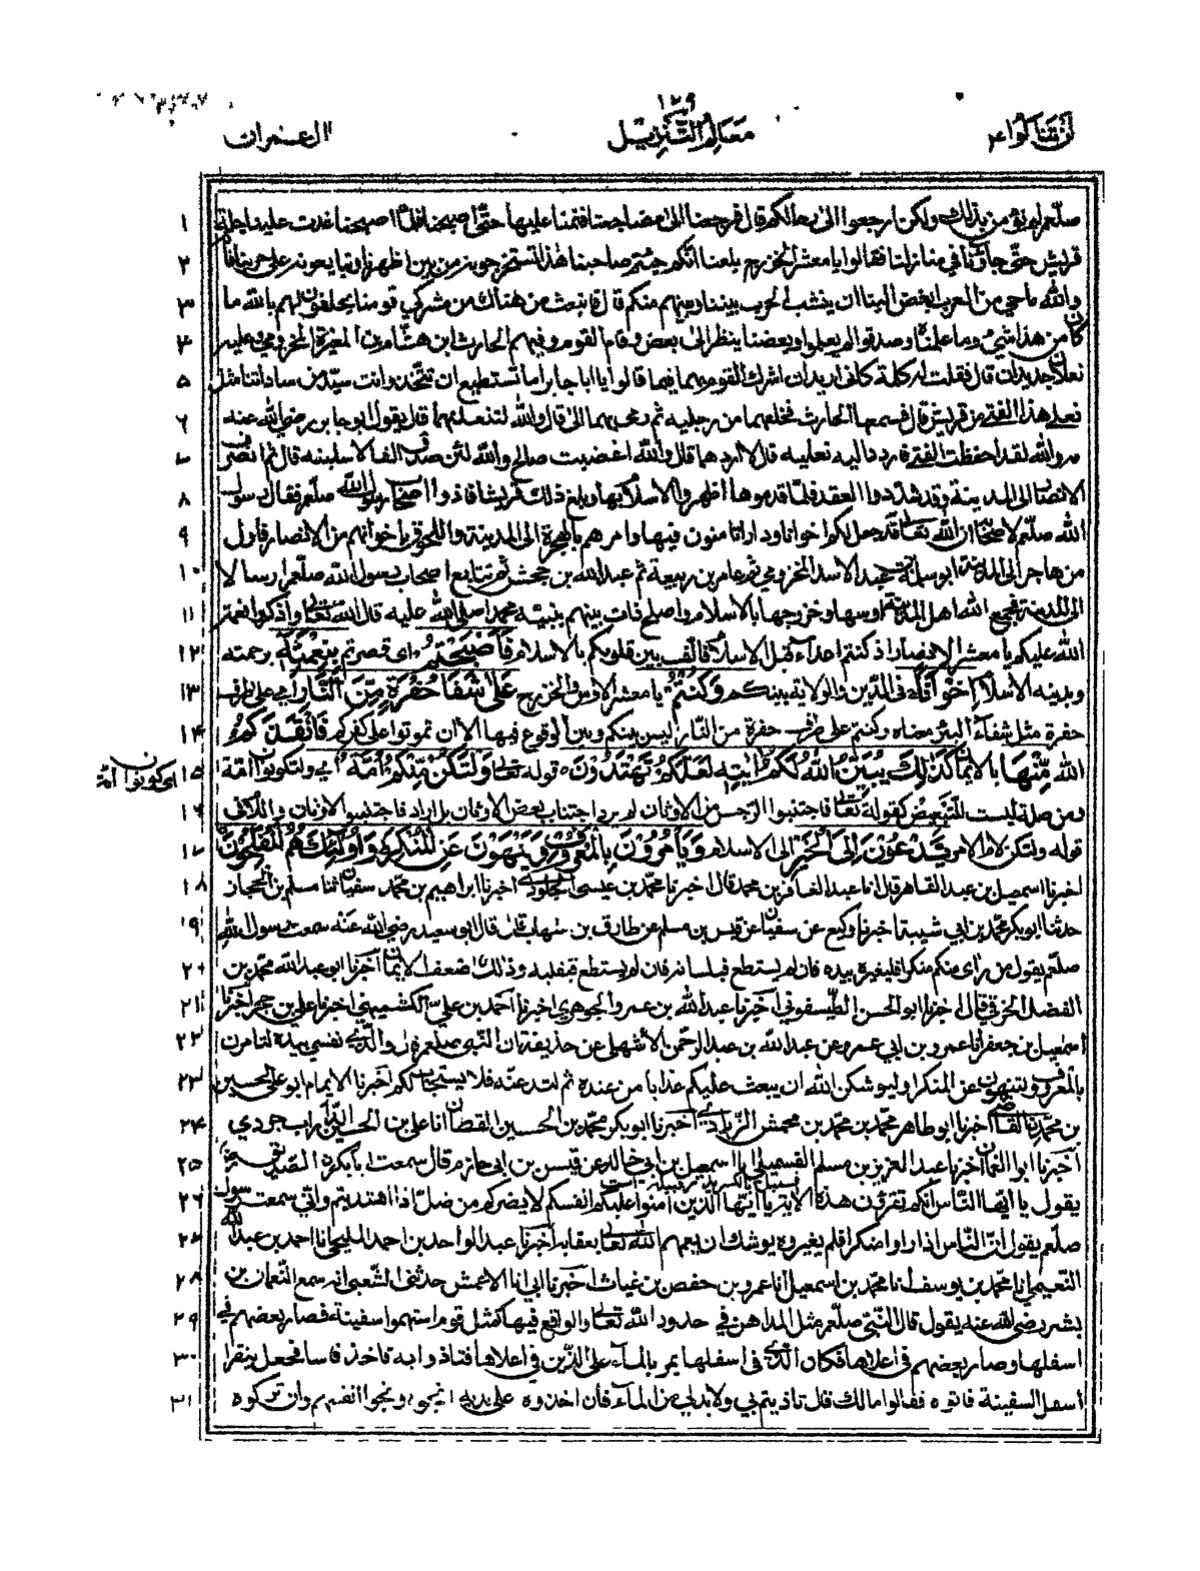 لن تنالوا ٤
معالم التنزيل
ال عمران
صلعم لم نؤمر بذلك ولكن ارجعوا الى رحالكم قال فرجعنا الى مضاجعنا فنمنا عليها حتى اصبحنا فلما اصبحنا غدت علينا جلة ١
قريش حتى جاؤنا في منازلنا فقالوا يا معشر الخزرج بلغنا انكم جئتم صاحبنا هذا تستخرجونه من بين اظهرنا وتبايعونه على حربنا ٢
والله ما حي من العرب ابغض الينا ان ينشب الحرب بيننا وبينهم منكم قال فانبعث من هناك من مشركي قومنا يحلفون لهم بالله ما ٣
كان من هذا شيء وما علمناه وصدقوا لم يعلموا وبعضنا ينظر الى بعض وقام القوم وفيهم الحارث ابن هشام بن المغيرة المخزومي وعليه ٤
نعلان جديدان قال فقلت له كلمة كاني اريد ان اشرك القوم بها فيما قالوا يا ابا جابر اما تستطيع ان تتخذ وانت سيد من ساداتنا مثل ٥
نعلي هذا الفتى من قريش قال فسمعها الحارث فخلعهما من رجليه ثم رمى بهما الى قال والله لتنعلنهما قال يقول ابو جابر رضي الله عنه ٦
مه والله لقد احفظت الفتى فاردد اليه نعليه قال لا اردهما قال والله ٧
الانصار الى المدينة وقد شددوا العقد فلما قدموها اظهروا الاسلام بها وبلغ ذلك قريشا فاذوا اصحاب رسول الله صلعم فقال رسول ٨
الله صلعم لاصحابه ان الله تعالى قد جعل لكم اخوانا ودارا تامنون فيها وامرهم بالهجرة الى المدينة واللحوق باخوانهم من الانصار فاول ٩
من هاجر الى المدينة ابو سلمة بن عبد الاسد المخزومي ثم عامر بن ربيعة ثم عبد الله بن جحش ثم تتابع اصحاب رسول الله صلعم ارسالا ١٠
الى المدينة فجمع الله اهل المدينة اوسها وخزرجها بالاسلام واصلح ذات بينهم بنبيه محمد صلى الله عليه قال الله تعالى واذكروا نعمة ١١
الله عليكم يا معشر الانصار اذ كنتم اعداء قبل الاسلام فالف بين قلوبكم بالاسلام فاصبحتم اي فصرتم بنعمته برحمته ١٢
وبدينه الاسلام اخوانا في الدين والولاية بينكم وكنتم يا معشر الاوس والخزرج على شفا حفرة من النار اي على طرف ١٣
حفرة مثل شفا البئر معناه وكنتم على طرف حفرة من النار ليس بينكم وبين الوقوع فيها الا ان تموتوا على كفركم فانقذكم ١٤
الله منها بالايمان كذلك يبين الله لكم ايته لعلكم تهتدون قوله تعالى ولتكن منكم امة اي ولتكونوا امة ١٥
اى كونوا امة
ومن صلة ليست للتبعيض كقوله تعالى فاجتنبوا الرجس من الاوثان لم يرد اجتناب بعض الاوثان بل اراد فاجتنبوا الاوثان واللام في ١٦
قوله ولتكن لام الامر يدعون الى الخير الى الاسلام ويامرون بالمعروف وينهون عن المنكر واولئك هم المفلحون ١٧
اخبرنا اسمعيل بن عبد القاهر قال انا عبد الغافر بن محمد قال اخبرنا محمد بن عيسى الجلودي اخبرنا ابراهيم بن محمد سفيان ثنا مسلم بن الحجاج ١٨
حدثنا ابو بكر محمد بن ابي شيبة اخبرنا وكيع عن سفيان عن قيس بن مسلم عن طارق بن شهاب قال قال ابو سعيد رضي الله عنه سمعت رسول الله ١٩
صلعم يقول من راى منكم منكرا فليغيره بيده فان لم يستطع فبلسانه فان لم يستطع فبقلبه وذلك اضعف الايمان اخبرنا ابو عبد الله محمد بن ٢٠
الفضل الخرقي قال اخبرنا ابو الحسن الطيسفوني اخبرنا عبد الله بن عمرو الجوهري اخبرنا احمد بن علي الكشميهني اخبرنا علي بن حجر اخبرنا ٢١
اسمعيل بن جعفر انا عمرو بن ابي عمرو عن عبد الله بن عبد الرحمن الاشهلي عن حذيفة ان النبي صلعم قال والذي نفسي بيده لتامرن ٢٢
بالمعروف وتنهون عن المنكر او ليوشكن الله ان يبعث عليكم عذابا من عنده ثم لتدعنه فلا يستجاب لكم اخبرنا الامام ابو علي الحسين ٢٣
بن محمد القاضي اخبرنا ابو طاهر محمد بن محمد بن محمش الزيادي اخبرنا ابو بكر محمد بن الحسين القطان انا علي بن الحسين الدرابجردي ٢٤
اخبرنا ابو النعمان اخبرنا عبد العزيز بن مسلم القسملي انا اسمعيل بن ابي خالد عن قيس بن ابي حازم قال سمعت ابا بكر الصديق ٢٥
يقول يا ايها الناس انكم تقرؤن هذه الاية يا ايها الذين امنوا عليكم انفسكم لا يضركم من ضل اذا اهتديتم واني سمعت رسول الله ٢٦
صلعم يقول ان الناس اذا راوا منكرا فلم يغيروه يوشك ان يعمهم الله تعالى بعقابه اخبرنا عبد الواحد بن احمد المليحي انا احمد بن عبد الله ٢٧
النعيمي انا محمد بن يوسف انا محمد بن اسمعيل انا عمرو بن حفص بن غياث اخبرنا ابي انا الاعمش حدثني الشعبي انه سمع النعمان بن ٢٨
بشير رضي الله عنه يقول قال النبي صلعم مثل المداهن في حدود الله تعالى والواقع فيها كمثل قوم استهموا سفينة فصار بعضهم في ٢٩
اسفلها وصار بعضهم في اعلاها فكان الذي في اسفلها يمر بالماء على الذين في اعلاها فتاذوا به فاخذ فاسا فجعل ينقر ٣٠
اسفل السفينة فاتوه فقالوا مالك قال تاذيتم بي ولا بد لي من الماء فان اخذوه على يديه انجوه ونجوا انفسهم وان تركوه ٣١